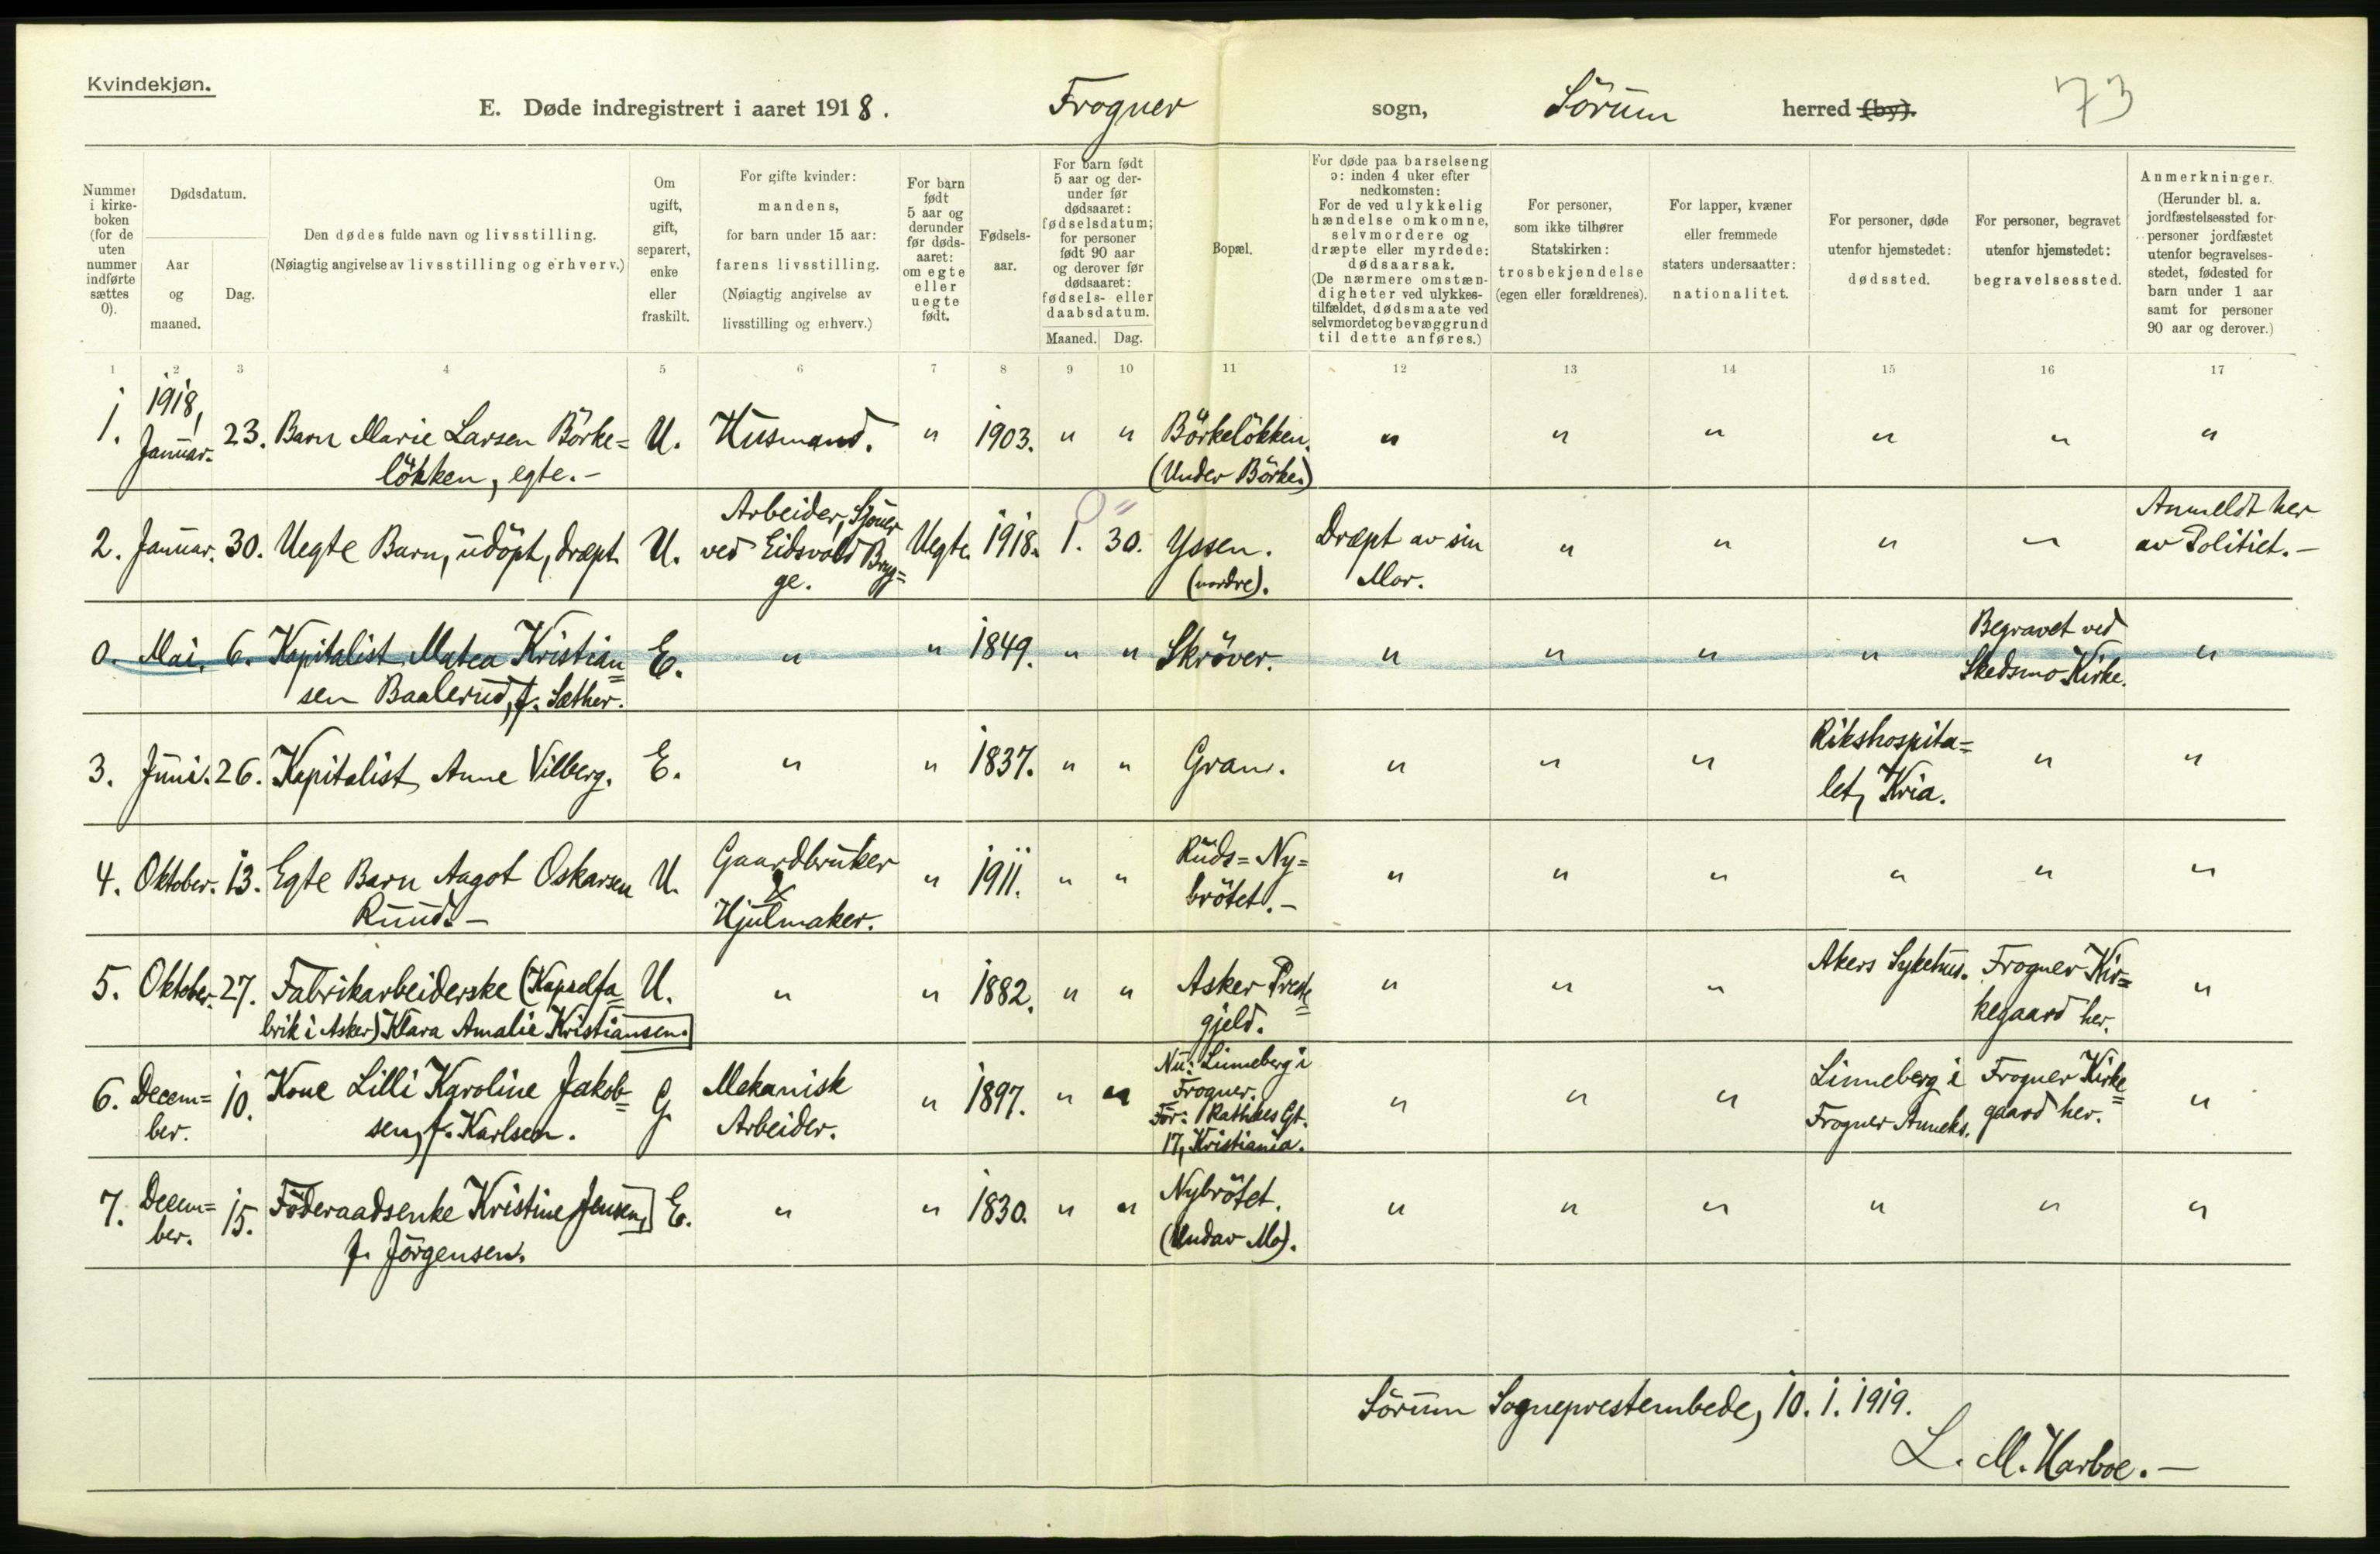 Kvindekjøn.
E. Døde indregistrert i aaret 1918. Frogner sogn, Sörum herred (by). 73
Nummer i kirkeboken (for de uten nummer indførte sættes 0).
Dødsdatum.
Aar og maaned.
Dag.
Den dødes fulde navn og livsstilling.
(Nøiagtig angivelse av livsstilling og erhverv.)
Om ugift, gift, separert, enke eller fraskilt.
For gifte kvinder: mandens, for barn under 15 aar: farens livsstilling. (Nøiagtig angivelse av livsstilling og erhverv.)
For barn født 5 aar og derunder før dødsaaret: om egte eller uegte født.
Fødselsaar.
For barn født 5 aar og derunder før dødsaaret: fødselsdatum; for personer født 90 aar og derover før dødsaaret: fødsels- eller daabsdatum.
Maaned. Dag.
Bopæl.
For døde paa barselseng ɔ: inden 4 uker efter nedkomsten: For de ved ulykkelig hændelse omkomne, selvmordere og dræpte eller myrdede: dødsaarsak. (De nærmere omstændigheter ved ulykkestilfældet, dødsmaate ved selvmordet og bevæggrund til dette anføres.)
For personer, som ikke tilhører Statskirken: trosbekjendelse (egen eller forældrenes).
For lapper, kvæner eller fremmede staters undersaatter: nationalitet.
For personer, døde utenfor hjemstedet: dødssted.
For personer, begravet utenfor hjemstedet: begravelsessted.
Anmerkninger. (Herunder bl. a. jordfæstelsessted for personer jordfæstet utenfor begravelsesstedet, fødested for barn under 1 aar samt for personer 90 aar og derover.)
1 2 3 4 5 6 7 8 9 10 11 12 13 14 15 16 17
1. 1918, Januar. 23. Barn Marie Larsen Börke=
lökken, egte.- U. Husmand. " 1903. " " Börkelökken.
(Under Börke.) " " " " " "
2. Januar. 30. Uegte Barn, udöpt, dræpt. U. Arbeider, Sjouer
ved Eidsvold Bryg=
ge. Uegte. 1918. 1. 30. Yssen.
(nordre). Dræpt av sin
Mor. " " " " Anmeldt her
av Politiet.-
0. Mai. 6. Kapitalist Matea Kristian=
sen Baalerud, f. Sæther. E. " " 1849. " " Skröver. " " " " Begravet ved
Skedsmo Kirke. "
3. Juni. 26. Kapitalist Anne Vilberg. E. " " 1837. " " Gran. " " " Rikshospita=
let, Kria. " "
4. Oktober. 13. Egte Barn Aagot Oskarsen
Ruud.- U. Gaardbruker
&
Hjulmaker. " 1911. " " Ruds=Ny=
brötet.- " " " " " "
5. Oktober. 27. Fabrikarbeiderske (Kapselfa=
brik i Asker) Klara Amalie Kristiansen. U. " " 1882. " " Asker Preste=
gjeld. " " " Akers Sykehus. Frogner Kir=
kegaard her. "
6. Decem=
ber. 10. Kone Lilli Karoline Jakob=
sen, f. Karlsen. G. Mekanisk
Arbeider. " 1897. " " Nu: Linneberg i
Frogner.
För: Rathkes Gt.
17, Kristiania. " " " Linneberg i
Frogner Anneks. Frogner Kirke=
gaard her. "
7. Decem=
ber. 15. Föderaadsenke Kristine Jensen,
f. Jörgensen. E. " " 1830. " " Nybrötet.
(Under Mo). " " " " " "
Sörum Sogneprestembede, 10.1.1919.
L. M. Harboe.-